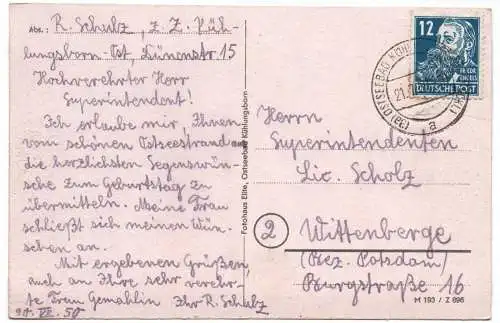 Abs.: R. Schulz, z. Z. Küh-
lungsborn Ost, Dünenstr 15
Hochverehrter Herr
Superintendent!
Ich erlaube mir, Ihnen
vom schönen Ostseestrand aus
die herzlichsten Segenswün-
sche zum Geburtstag zu
übermitteln. Meine Frau
schließt sich meinen Wün-
schen an.
Mit ergebenen Grüßen,
auch an Ihre sehr verehr-
te Frau Gemahlin Ihr R. Schulz
Fotohaus Elite, Ostseebad Kühlungsborn
12
DEUTSCHE POST
OSTSEEBAD KÜHL
a
Herrn
Superintendenten
Lic. Scholz
2
Wittenberge
(Bez. Potsdam)
Burgstraße 16
M 193 / Z 696